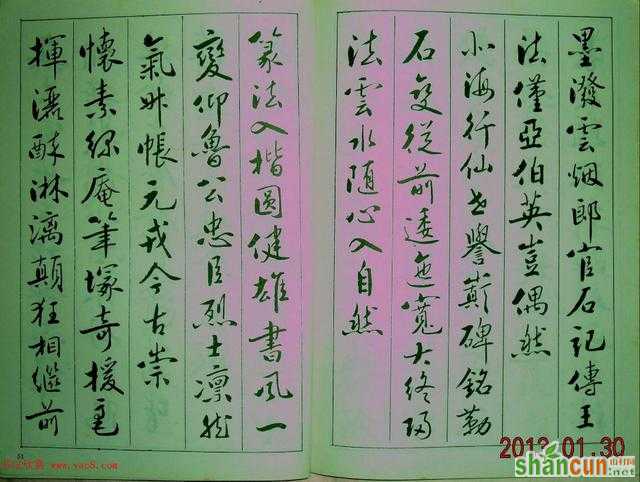 墨潑雲烟郎官石記傳王
法僅亞伯英豈偶然
北海行仙世譽蘄碑銘勒
石變從前逶迤寬大終歸
法雲水随心入自然
篆法入楷圓健雄書風一
變仰魯公忠臣烈士凜然
氣升帳元戎今古崇
懷素綠庵筆塚奇援毫
揮灑淋漓顛狂相繼前
51
www.yac8.com
2013.01.30
shancun
.net